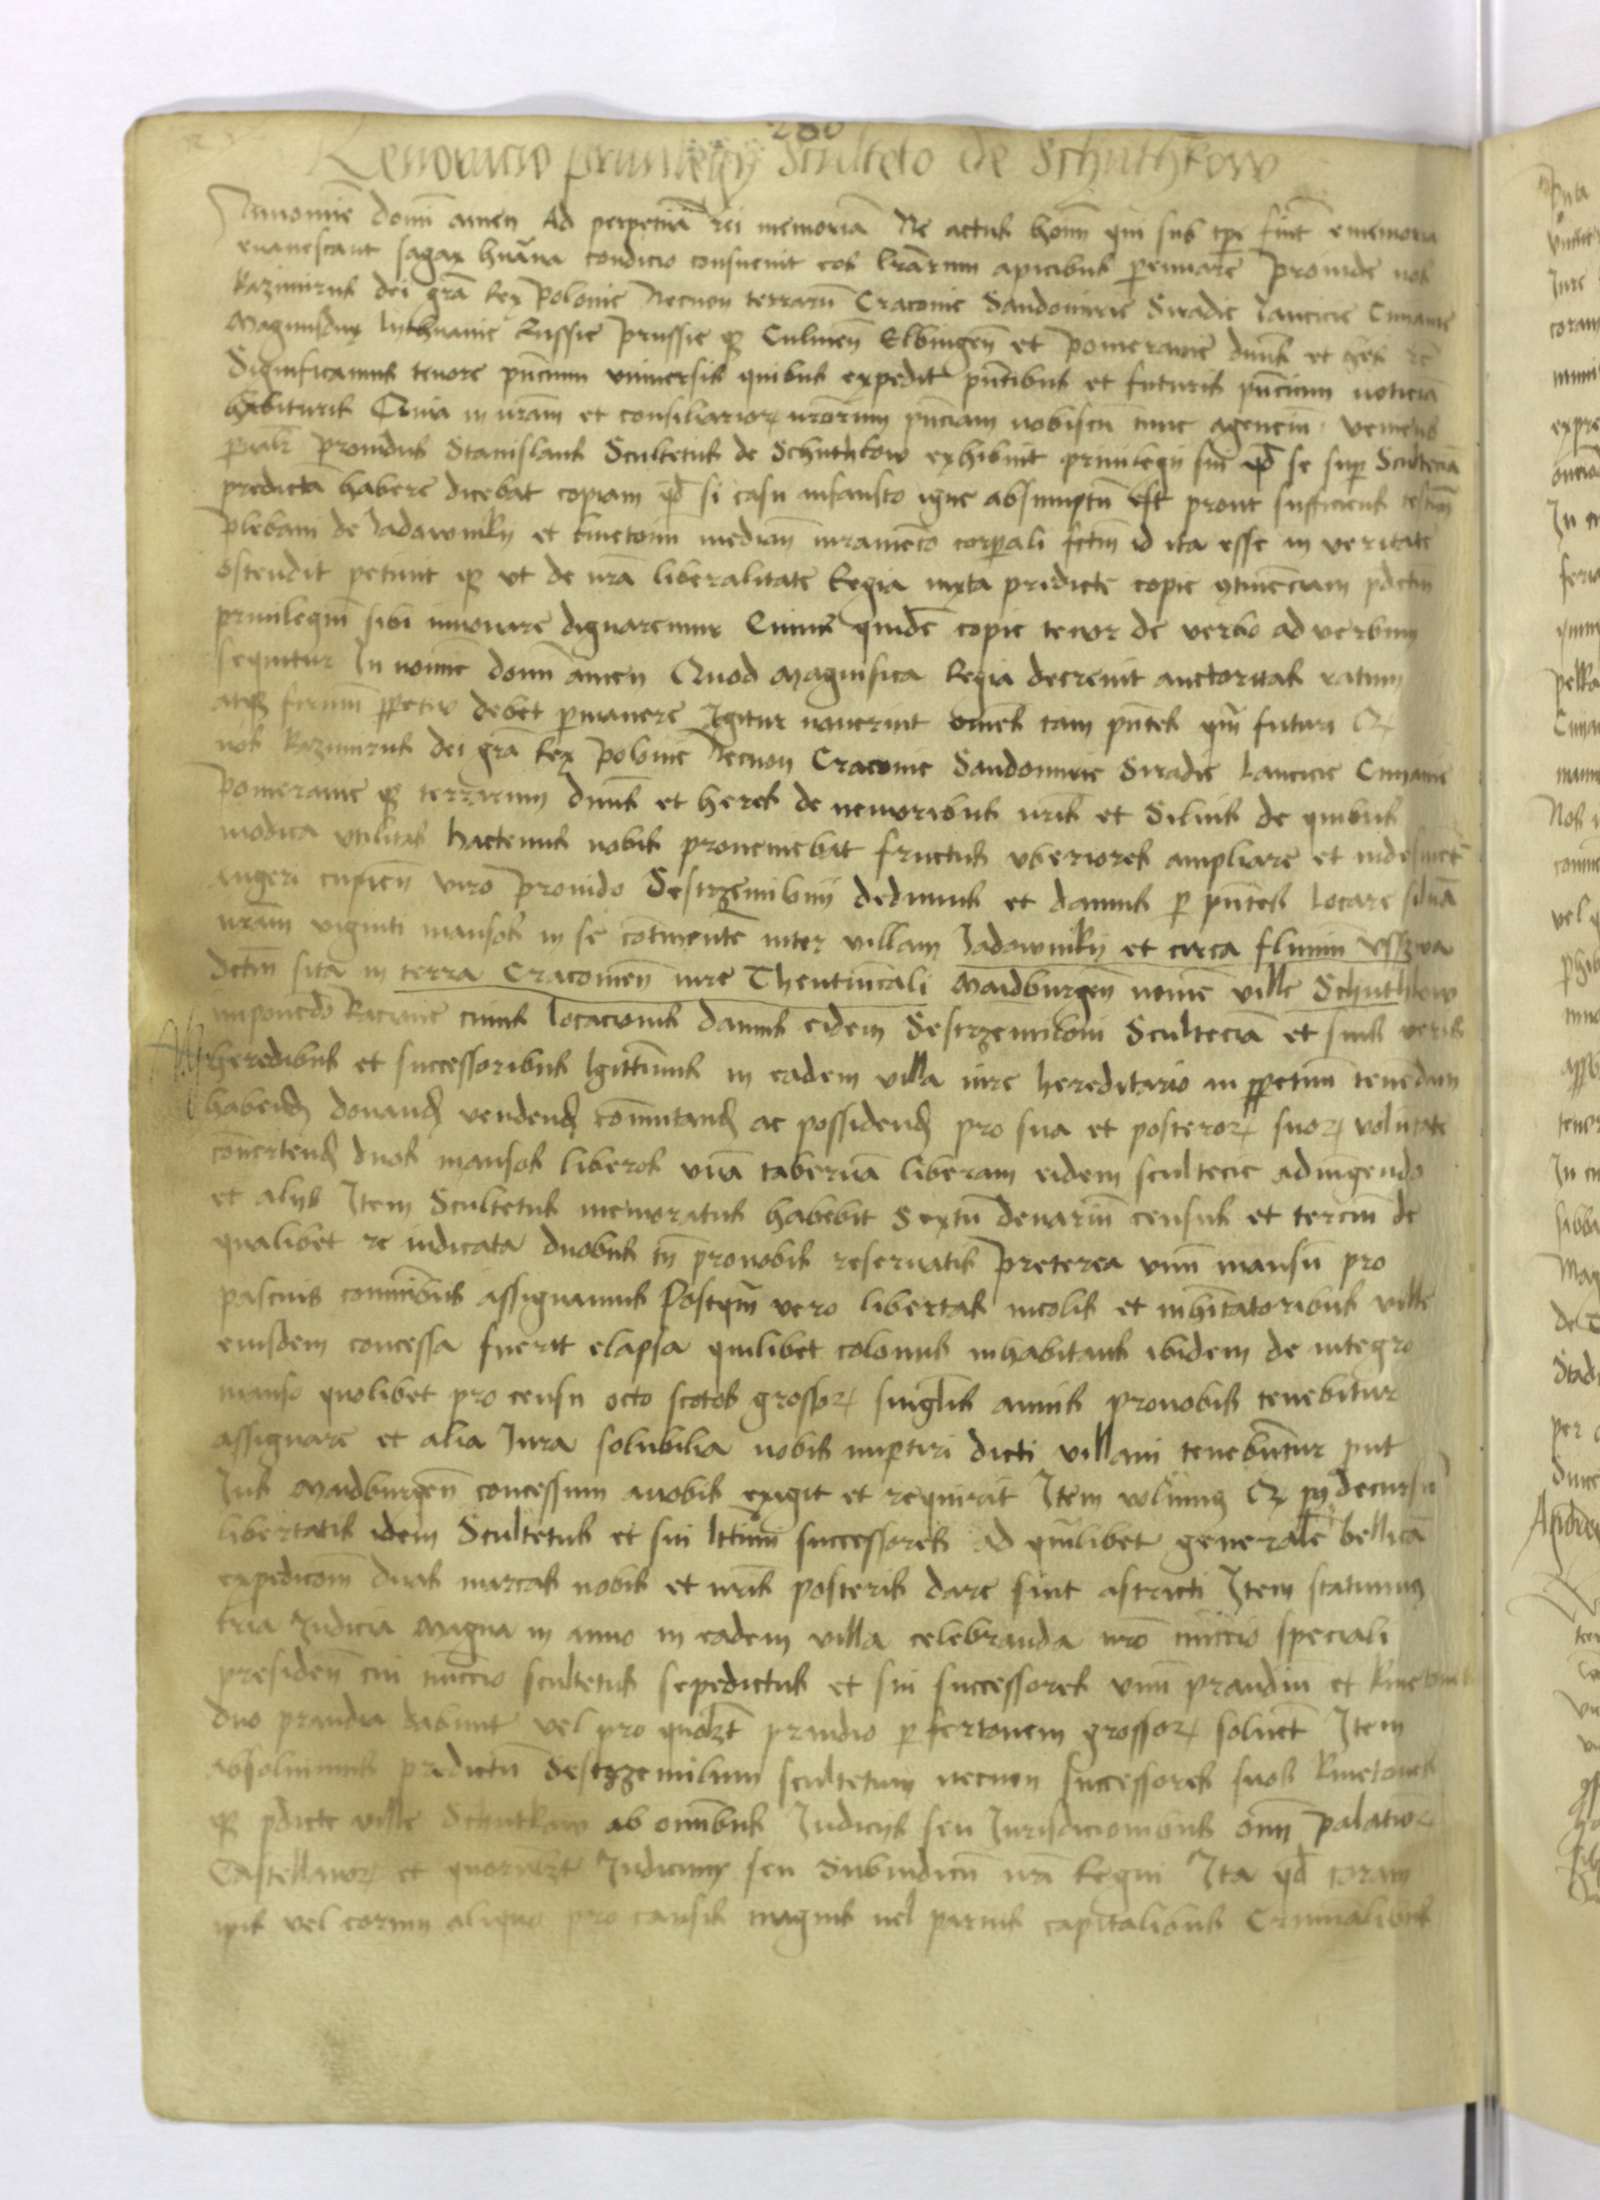 280
Renovacio privilegij Sculteto de Schuthkow
Innomie domi amen Ad perpetua rei memoria Ne actus homi qui sub tpe fiut ememoria
evanescant sagax huana condicio consuevit eos lrarum apicibus perennare Proinde nos
Kazimirus dei gra Rex Polonie Necnon terraru Cracovie Sandomirie Siradie Lancicie Cuyavie
Magnusdux Lithuanie Russie Prussie q3 Culmen Elbingen et Pomeranie duus et heres
Significamus tenore pncium vniversis quibus expedit pntibus et futuris pncium noticia
habituris Quia in nram et consiliarior nrorum pnciam nobiscu tunc agencium veniens
Providus Stanislaus Scultetus de Schuthkow exhibuit privilegy sui qd se sup Scultecia
predicta habere dicebat copiam qd si casu infausto igne absumptu est prout sufficiens
plebani de Jadowniky et kmetonu median iurameto corpali id ita esse in veritate
ostendit petivit q3 vt de nra liberalitate Regia iuxta predicte copie otinenciam pdctm
privilegiu sibi innovare dignaremur Cuius quide copie tenor de verbo ad verbum
sequitur In noie domi amen Quod Magnifica Regia decrevit auctoritas ratum
atq3 firmu ppetuo debet pmanere Igitur noverint omes tam pntes qm futuri Q
nos Kazimirus dei gra Rex Polonie Necnon Cracovie Sandomirie Siradie Lancicie Cuyavie
Pomeranie q3 terrarum duus et heres de nemoribus nris et Silvis de quibus
modica vtilitas hactenus nobis proveniebat fructus vberiores ampliare et
augeri cupien viro Provido Sestrzemiloni dedimus et damus p pntes locare silva
nram viginti mansos in se cotinente inter villam Jadowniky et circa fluvim Vsswa
dctm sita in terra Cracovien iure Theutunicali Maidburgen nomie ville Schuthkow
imponedo Racione cuius locacionis damus eidem Sestrzemiloni Scultecia et suis veris
heredibus et successoribus lgittimis in eadem villa iure hereditario in ppetuum tenendum
habend donand vendend comutand ac possidend pro sua et posteror suor voluntate
convertend duos mansos liberos vna taberna liberam eidem scultecie adiugendo
et alys Item Scultetus memoratus habebit sextu denariu census et terciu de
qualibet re iudicata duobus tn pronobis reservatis Preterea vnu mansu pro
pascuis comunibus assignamus Postqm vero libertas incolis et inhitatoribus ville
eiusdem concessa fuerit elapsa quilibet colonus inhabitans ibidem de integro
manso quolibet pro censu octo scotos grossor singlis annis pronobis tenebitur
assignare et alia Jura solubilia nobis impertiri dicti villani tenebuntur put
Jus Maidburgen concessum anobis exigit et requirit Item volumus Q in decursu
libertatis idem Scultetus et sui lttimi successores ad qmlibet generale bellica
expedicom duas marcas nobis et nris posteris dare sint astricti Item statuimus
tria Judicia Magna in anno in eadem villa celebranda nro nuccio speciali
presiden cui nuccio scultetus sepedictus et sui successores vnu prandiu et kmetones
duo prandia dabunt vel pro quolzt prandio p fertonem grossor solvet Item
absolvimus predictu Sestrzemilum scultetum necnon successores suos kmetones
q3 pdicte ville Schutkow ab omibus Judicys seu Jurisdicionibus omi Palatior
Castellanor et quorulzt Judicum seu Subiudicu nri Regni Ita qd coram
ipis vel eorum aliquo pro causis magnis vel parvis capitalibus Criminalibus